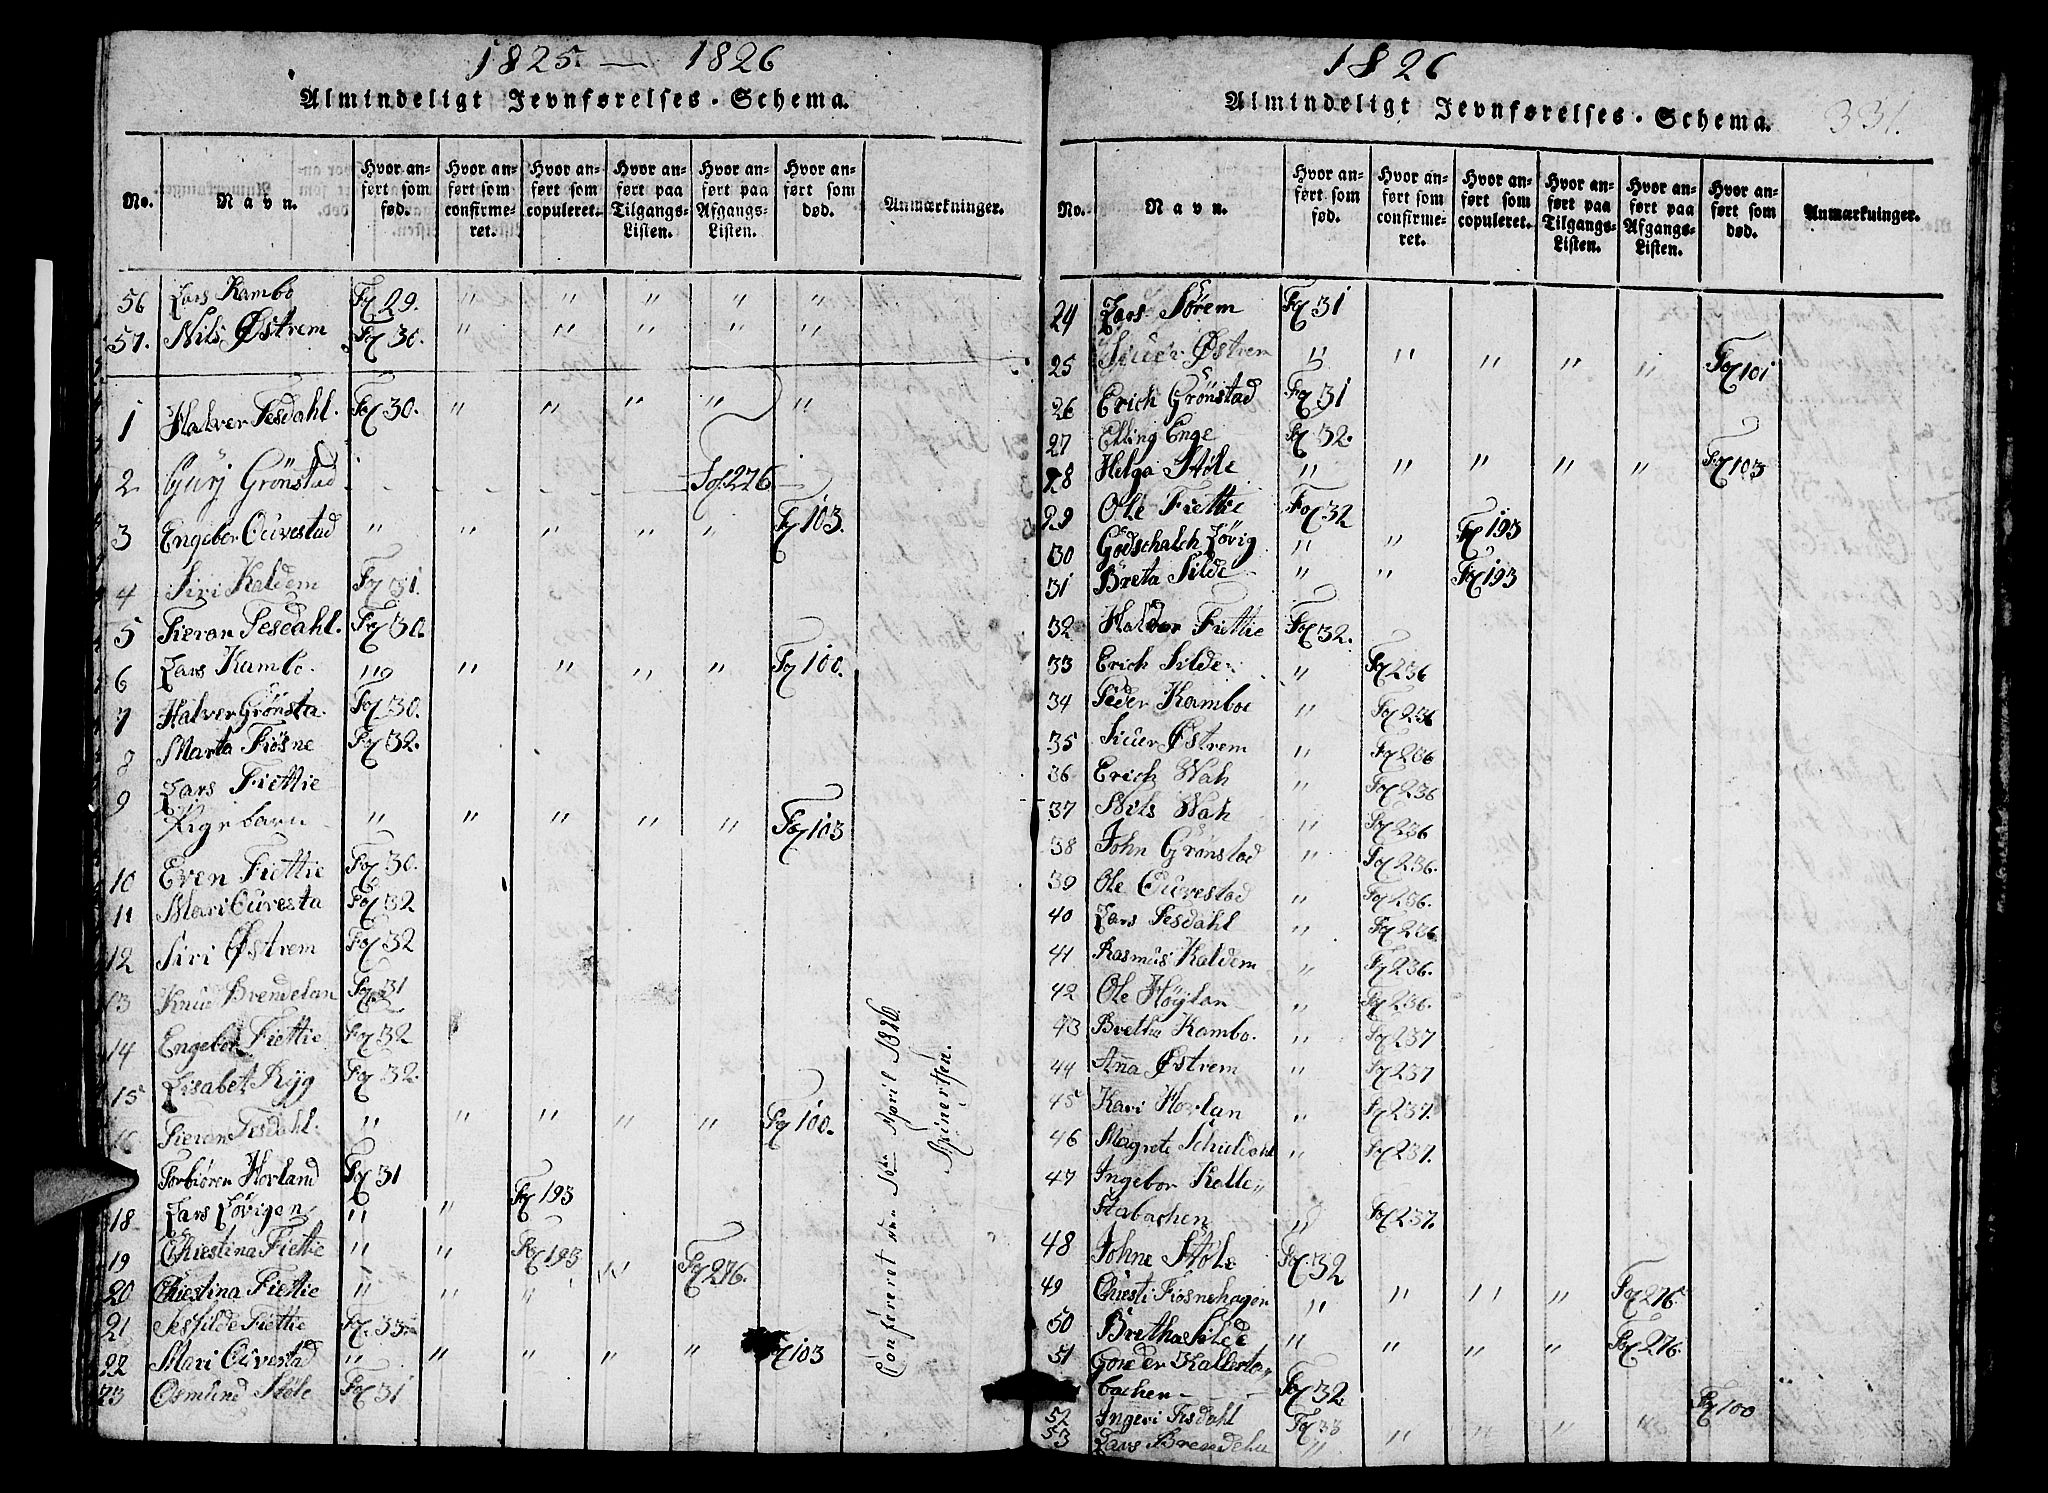 1825. — 1826
Almindeligt Jevnførelses-Schema.
No. Navn. Hvor anført som fød. Hvor anført som confirmeret. Hvor anført som copuleret. Hvor anført paa Tilgangs-Listen. Hvor anført paa Afgangs-Listen. Hvor anført som død. Anmærkninger.
56 Lars Kambo Fol 29. " " " " "
57. Nils Østrem Fol 30. " " " " "
1 Halver Tesdahl. Fol 30. " " " " "
2 Gurj Grönstad Fol. 276
3 Engebor Ouvestad " " " " " Fol 103.
4 Siri Kaldem Fol 31.
5 Sieran Tesdahl. Fol 30.
6 Lars Kambo. " " " " " Fol 100.
7 Halver Grönsta. Fol 30.
8 Marta Fiösne Fol 32.
9 Lars Fiettie
Pigebarn " " " " " Fol 103
10 Even Fiettie Fol 30.
11 Mari Ouvesta Fol 32
12 Siri Østrem Fol 32
13 Knud Brendelan Fol 31
14 Engebor Fiettie Fol 32
15 Lisabet Ryg Fol 32.
16 Sieran Tesdahl. " " " " " Fol 100.
Torbiören Horland Fol 31
18 Lars Lövigen " " Fol 193
19 Chrestina Fiettie " " Fol 193 " Fol 276.
20 Chrestina Fiettie " " "
21 Fiettie Fol. 33
22 Mari Ouvestad " " " " " Fol 103
23 Osmund Støle Fol 31
Confereret den April 1826.
1826
Almindeligt Jevnførelses-Schema.
331.
No. Navn. Hvor anført som fød. Hvor anført som confirmeret. Hvor anført som copuleret. Hvor anført paa Tilgangs-Listen. Hvor anført paa Afgangs-Listen. Hvor anført som død. Anmærkninger.
24 Lars Sörem Fol 31
25 Siuer Østrem " " " " " Fol 101
26 Erich Grönstad Fol 31
27 Elling Enge Fol 32.
28 Helga Støle " " " " " Fol 103
29 Ole Fiettie Fol 32
30 Godschalch Lövig " " Fol 193
31 Breta Silde " " Fol 193
32 Halver Fiettie Fol 32.
33 Erich Silde " Fol 236
34 Peder Kamboe " Fol 236
35 Siuer Østrem " Fol 236
36 Erich Wah " Fol 236
37 Nils Wah " Fol 236
38 John Grönstad " Fol 236.
39 Ole Ouvestad " Fol 236.
40 Lars Tesdahl " Fol 236.
41 Rasmus Kaldem " Fol 236.
42 Ole Höylan " Fol 236.
43 Bretha Kambo. " Fol 237
44 Anna Østrem " Fol 237
45 Kari Horlan " Fol 237.
46 Magrete Schieldahl " Fol 237.
47 Ingebor Kalle"
stabachen " Fol 237.
48 Johne Støle Fol. 32
49 Chresti Fiösnehagen " " " " Fol 276.
50 Bretha Silde " " " " Fol 276.
51 Gonder Kallesta"
bachen Fol 32.
52 Ingeri Tesdahl Fol 33
53 Lars Brendelu " " " " " Fol 100